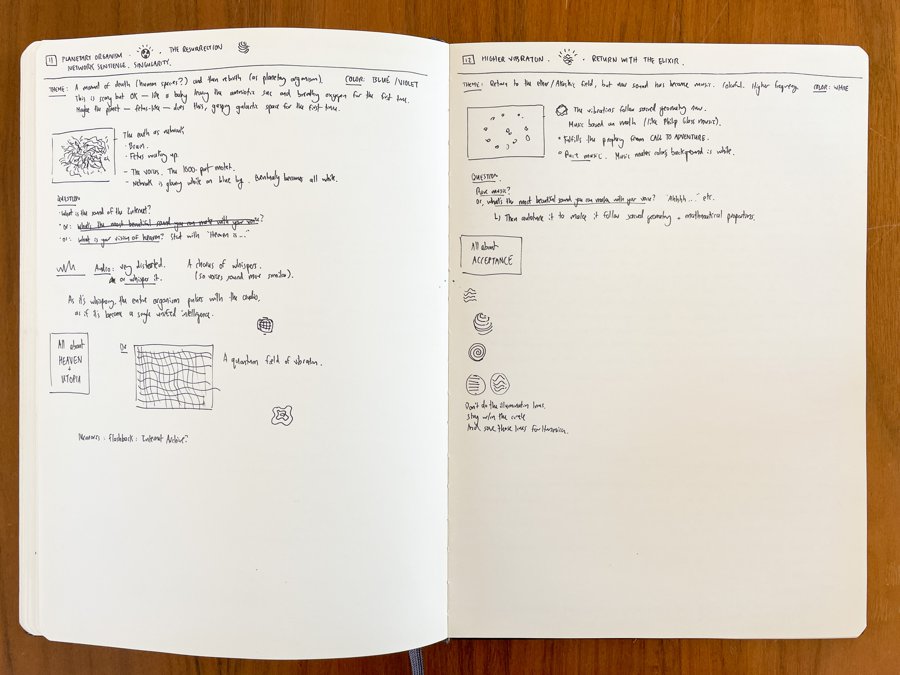 11 PLANETARY ORGANISM. THE RESURRECTION
NETWORK SENTIENCE. SINGULARITY.
THEME: A moment of death (human species?) and then rebirth (as planetary organism). COLOR: BLUE/VIOLET
This is scary but OK — like a baby leaving the amniotic sac and breathing oxygen for the first time.
Maybe the planet — fetus-like — does this, gasping galactic space for the first time.
The earth as network.
· Brain.
· Fetus waking up.
- The voices. The 1000-part motet.
- Network is glowing white on blue bg. Eventually becomes all white.
QUESTION
· What is the sound of the Internet?
· Or: What's the most beautiful sound you can make with your voice?
· Or: What is your vision of heaven? Start with "Heaven is..."
Audio: very distorted.
or whisper it.
A chorus of whispers.
(so voices sound more similar).
As it's whispering, the entire organism pulses with the audio,
as if it's become a single unified intelligence.
All about
HEAVEN
+
UTOPIA
OR
A quantum field of vibration.
Memories: Flashback: Internet Archive?
12 HIGHER VIBRATION. RETURN WITH THE ELIXIR.
THEME: Return to the ether/Akashic field, but now sound has become music. Colorful. Higher frequency. COLOR: WHITE
The vibrations follow sacred geometry now.
Music based on math (like Philip Glass music).
· Fulfills the prophecy from CALL TO ADVENTURE.
· Pure music. Music makes color, background is white.
QUESTION.
Pure music?
Or, what's the most beautiful sound you can make with your voice? "Ahhhh..." etc.
↳ Then autotune it to make it follow sacred geometry + mathematical proportions.
All about
ACCEPTANCE
Don't do the illumination lines.
Stay w/in the circle
And save those lines for Harmonica.